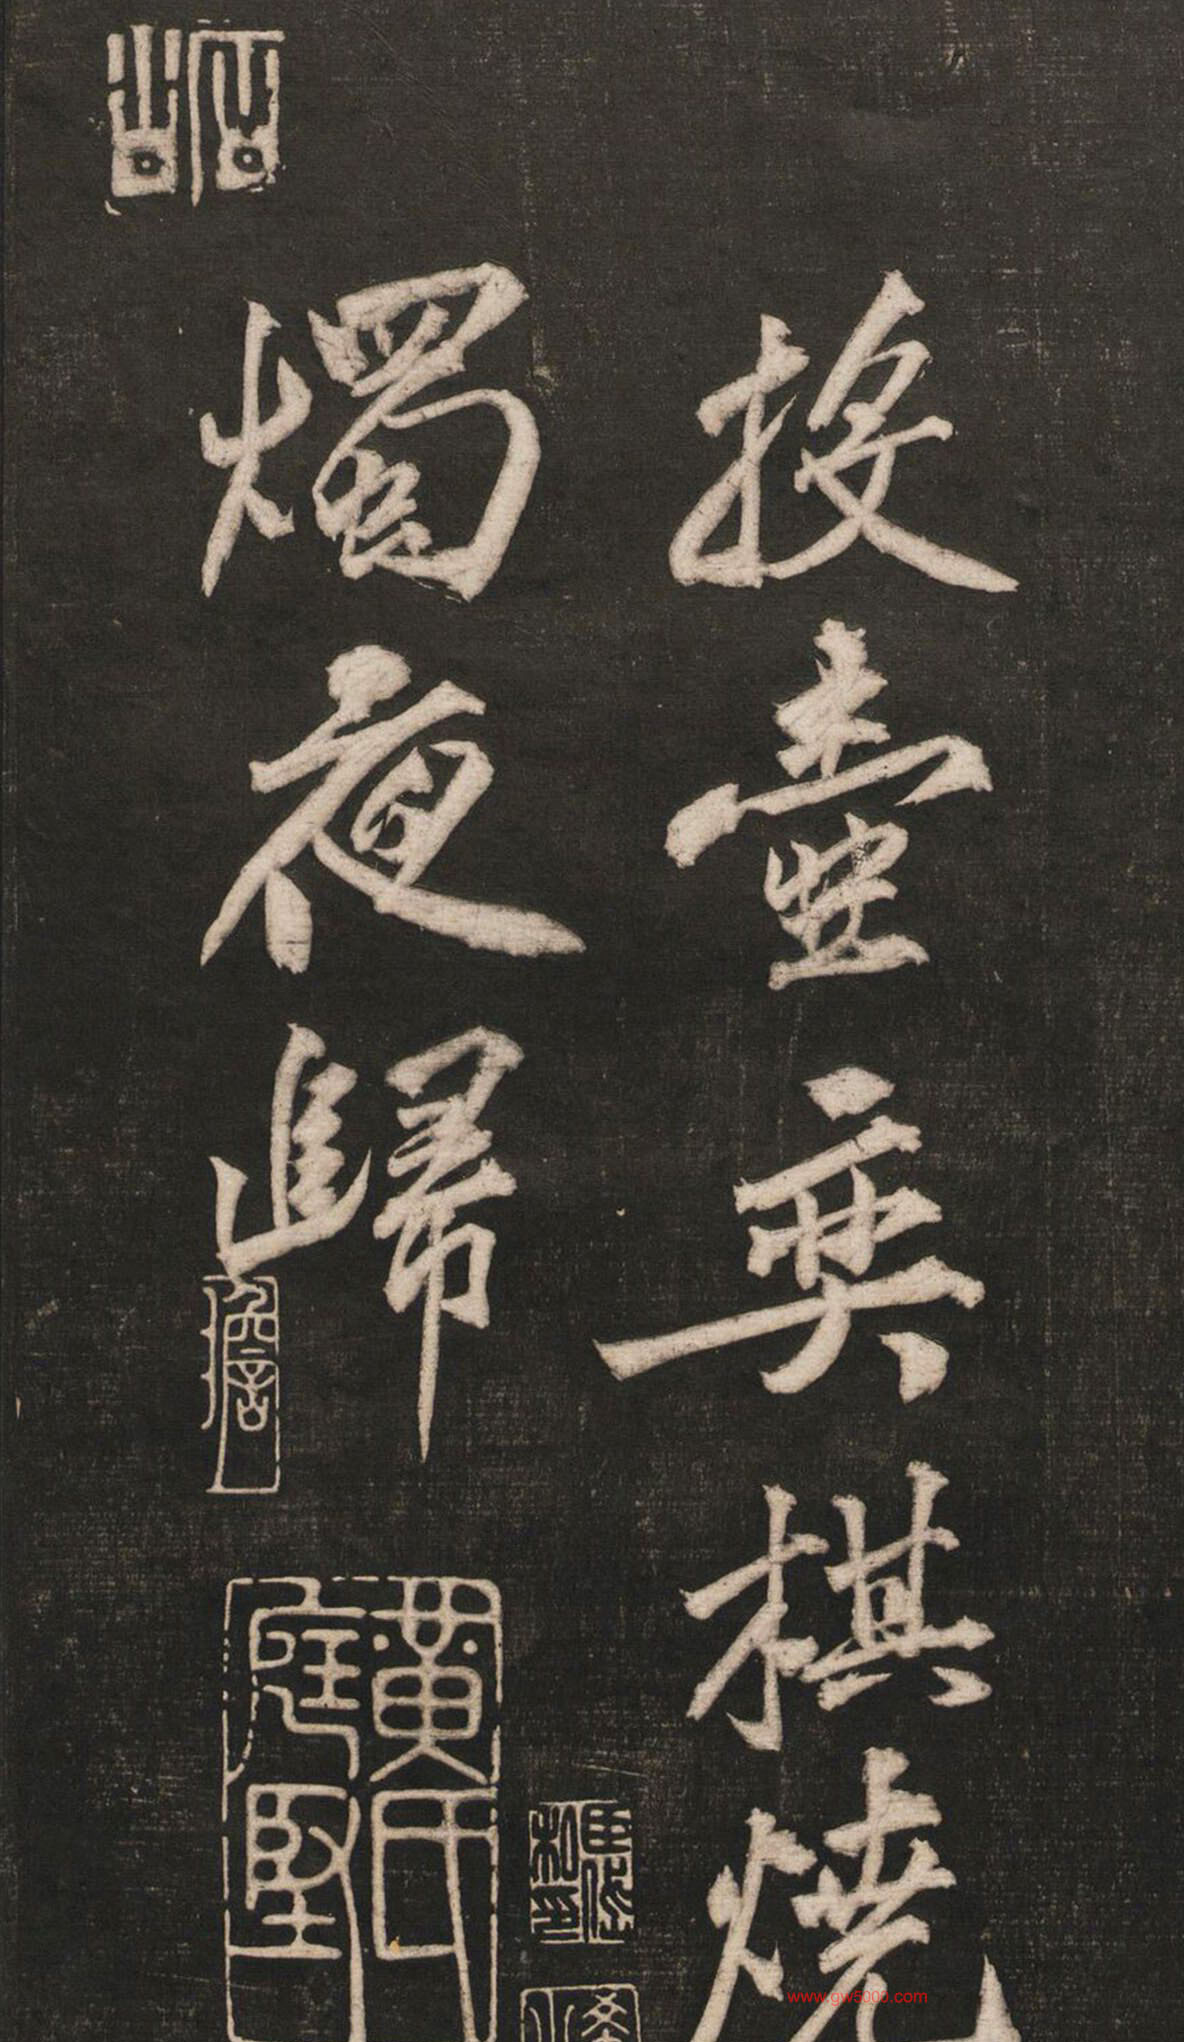 投壺弈棋燒
燭夜歸
黃氏庭堅
www.gw5000.com